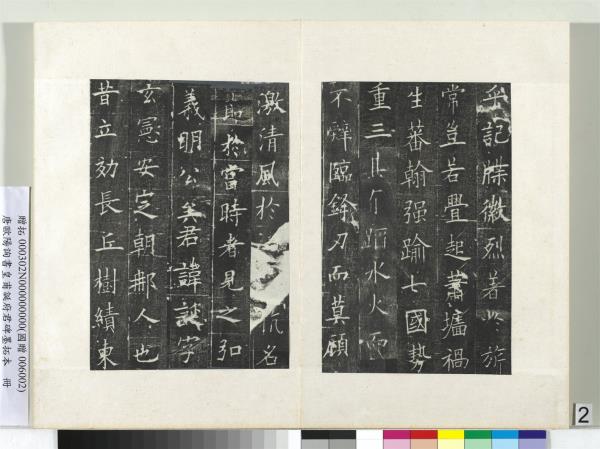 乎記牒徽烈著於旂
常豈若疊起蕭墻禍
生蕃翰强踰七國勢
重三 蹈水火而
不辭臨鋒刃而莫顧
激清風於 抗名
節於當時者見之弘
義明公矣君諱誕字
玄憲安定朝那人也
昔立効長丘樹績東
贈拓 000302N000000000(國贈 006002)
唐歐陽詢書皇甫誕府君碑墨拓本 冊
2